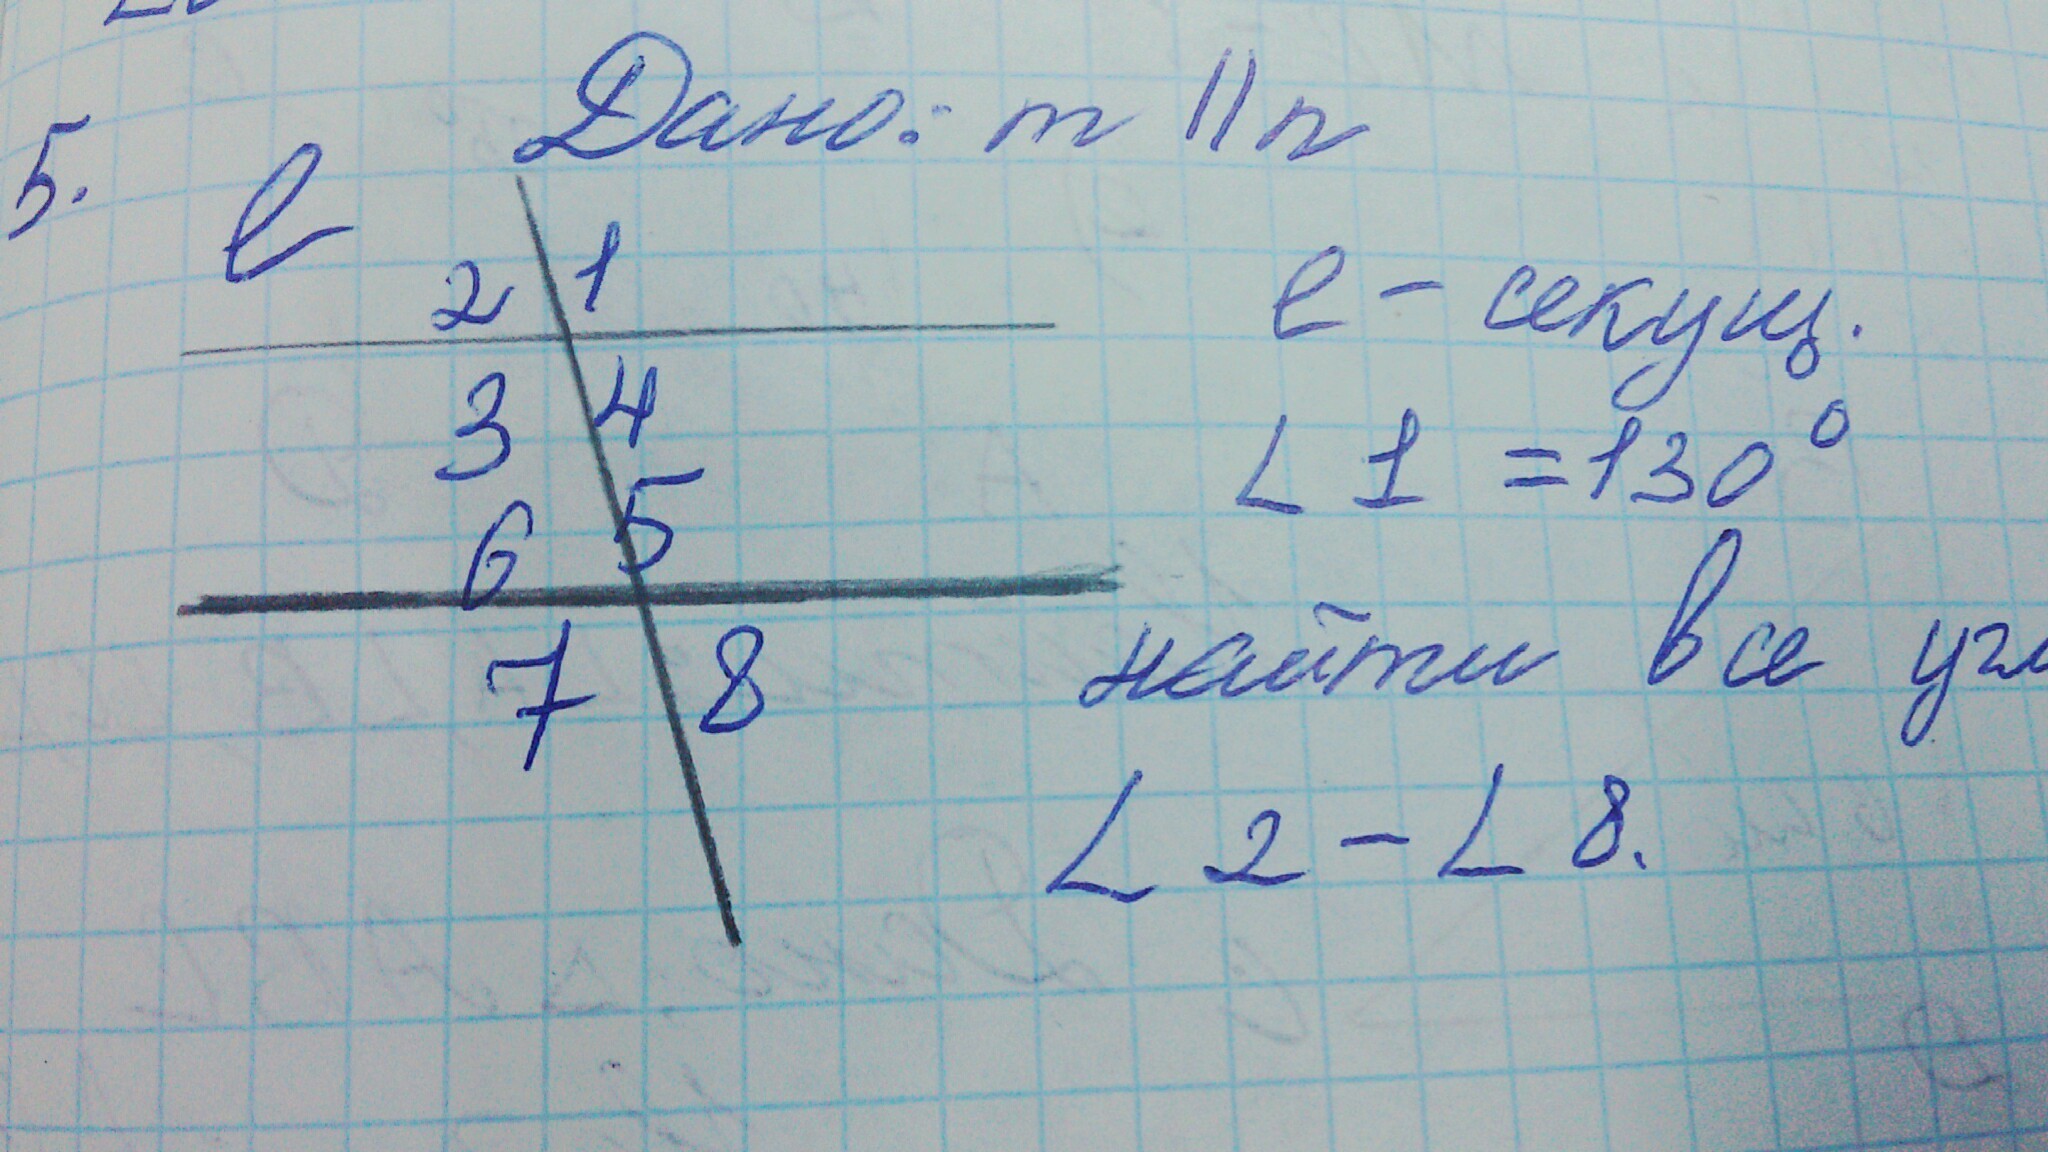 5.
Дано: m || n
l
2 1
l - секущ.
3 4
∠1 = 130°
6 5
найти все угл
7 8
∠2 - ∠8.